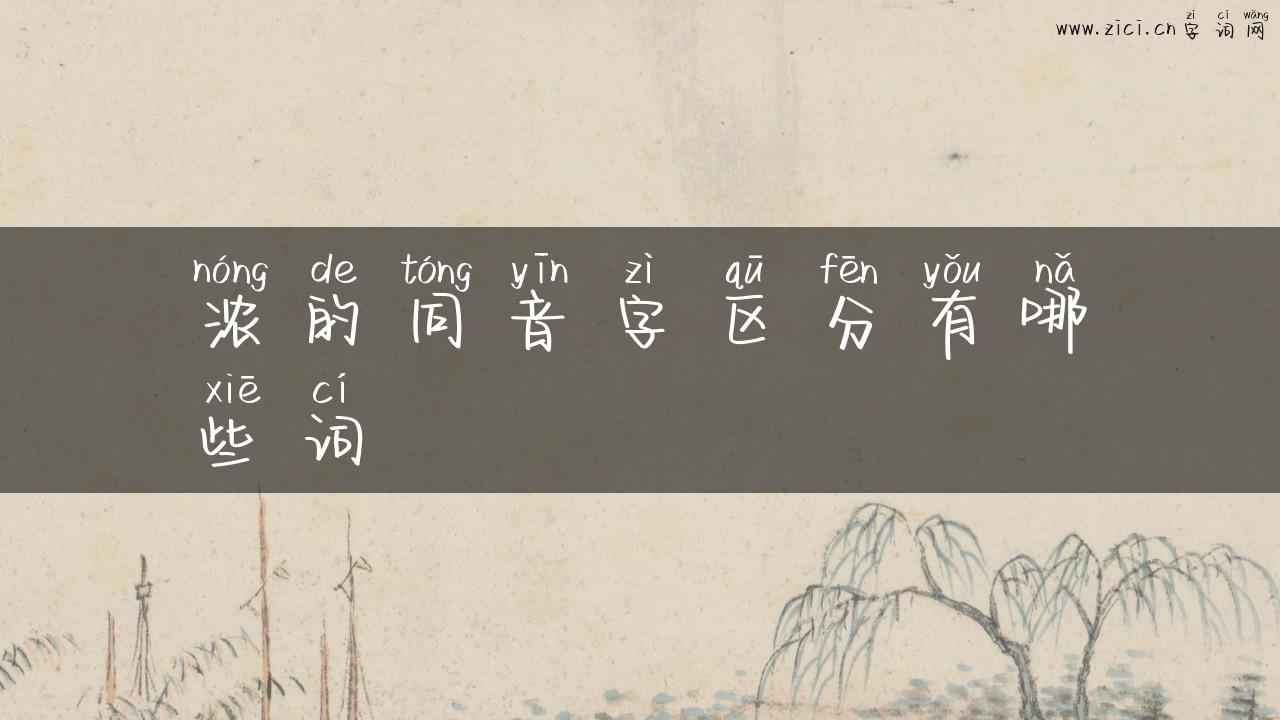 zì cí wǎng
www.zici.cn 字 词 网
nóng de tóng yīn zì qū fēn yǒu nǎ
浓 的 同 音 字 区 分 有 哪
xiē cí
些 词